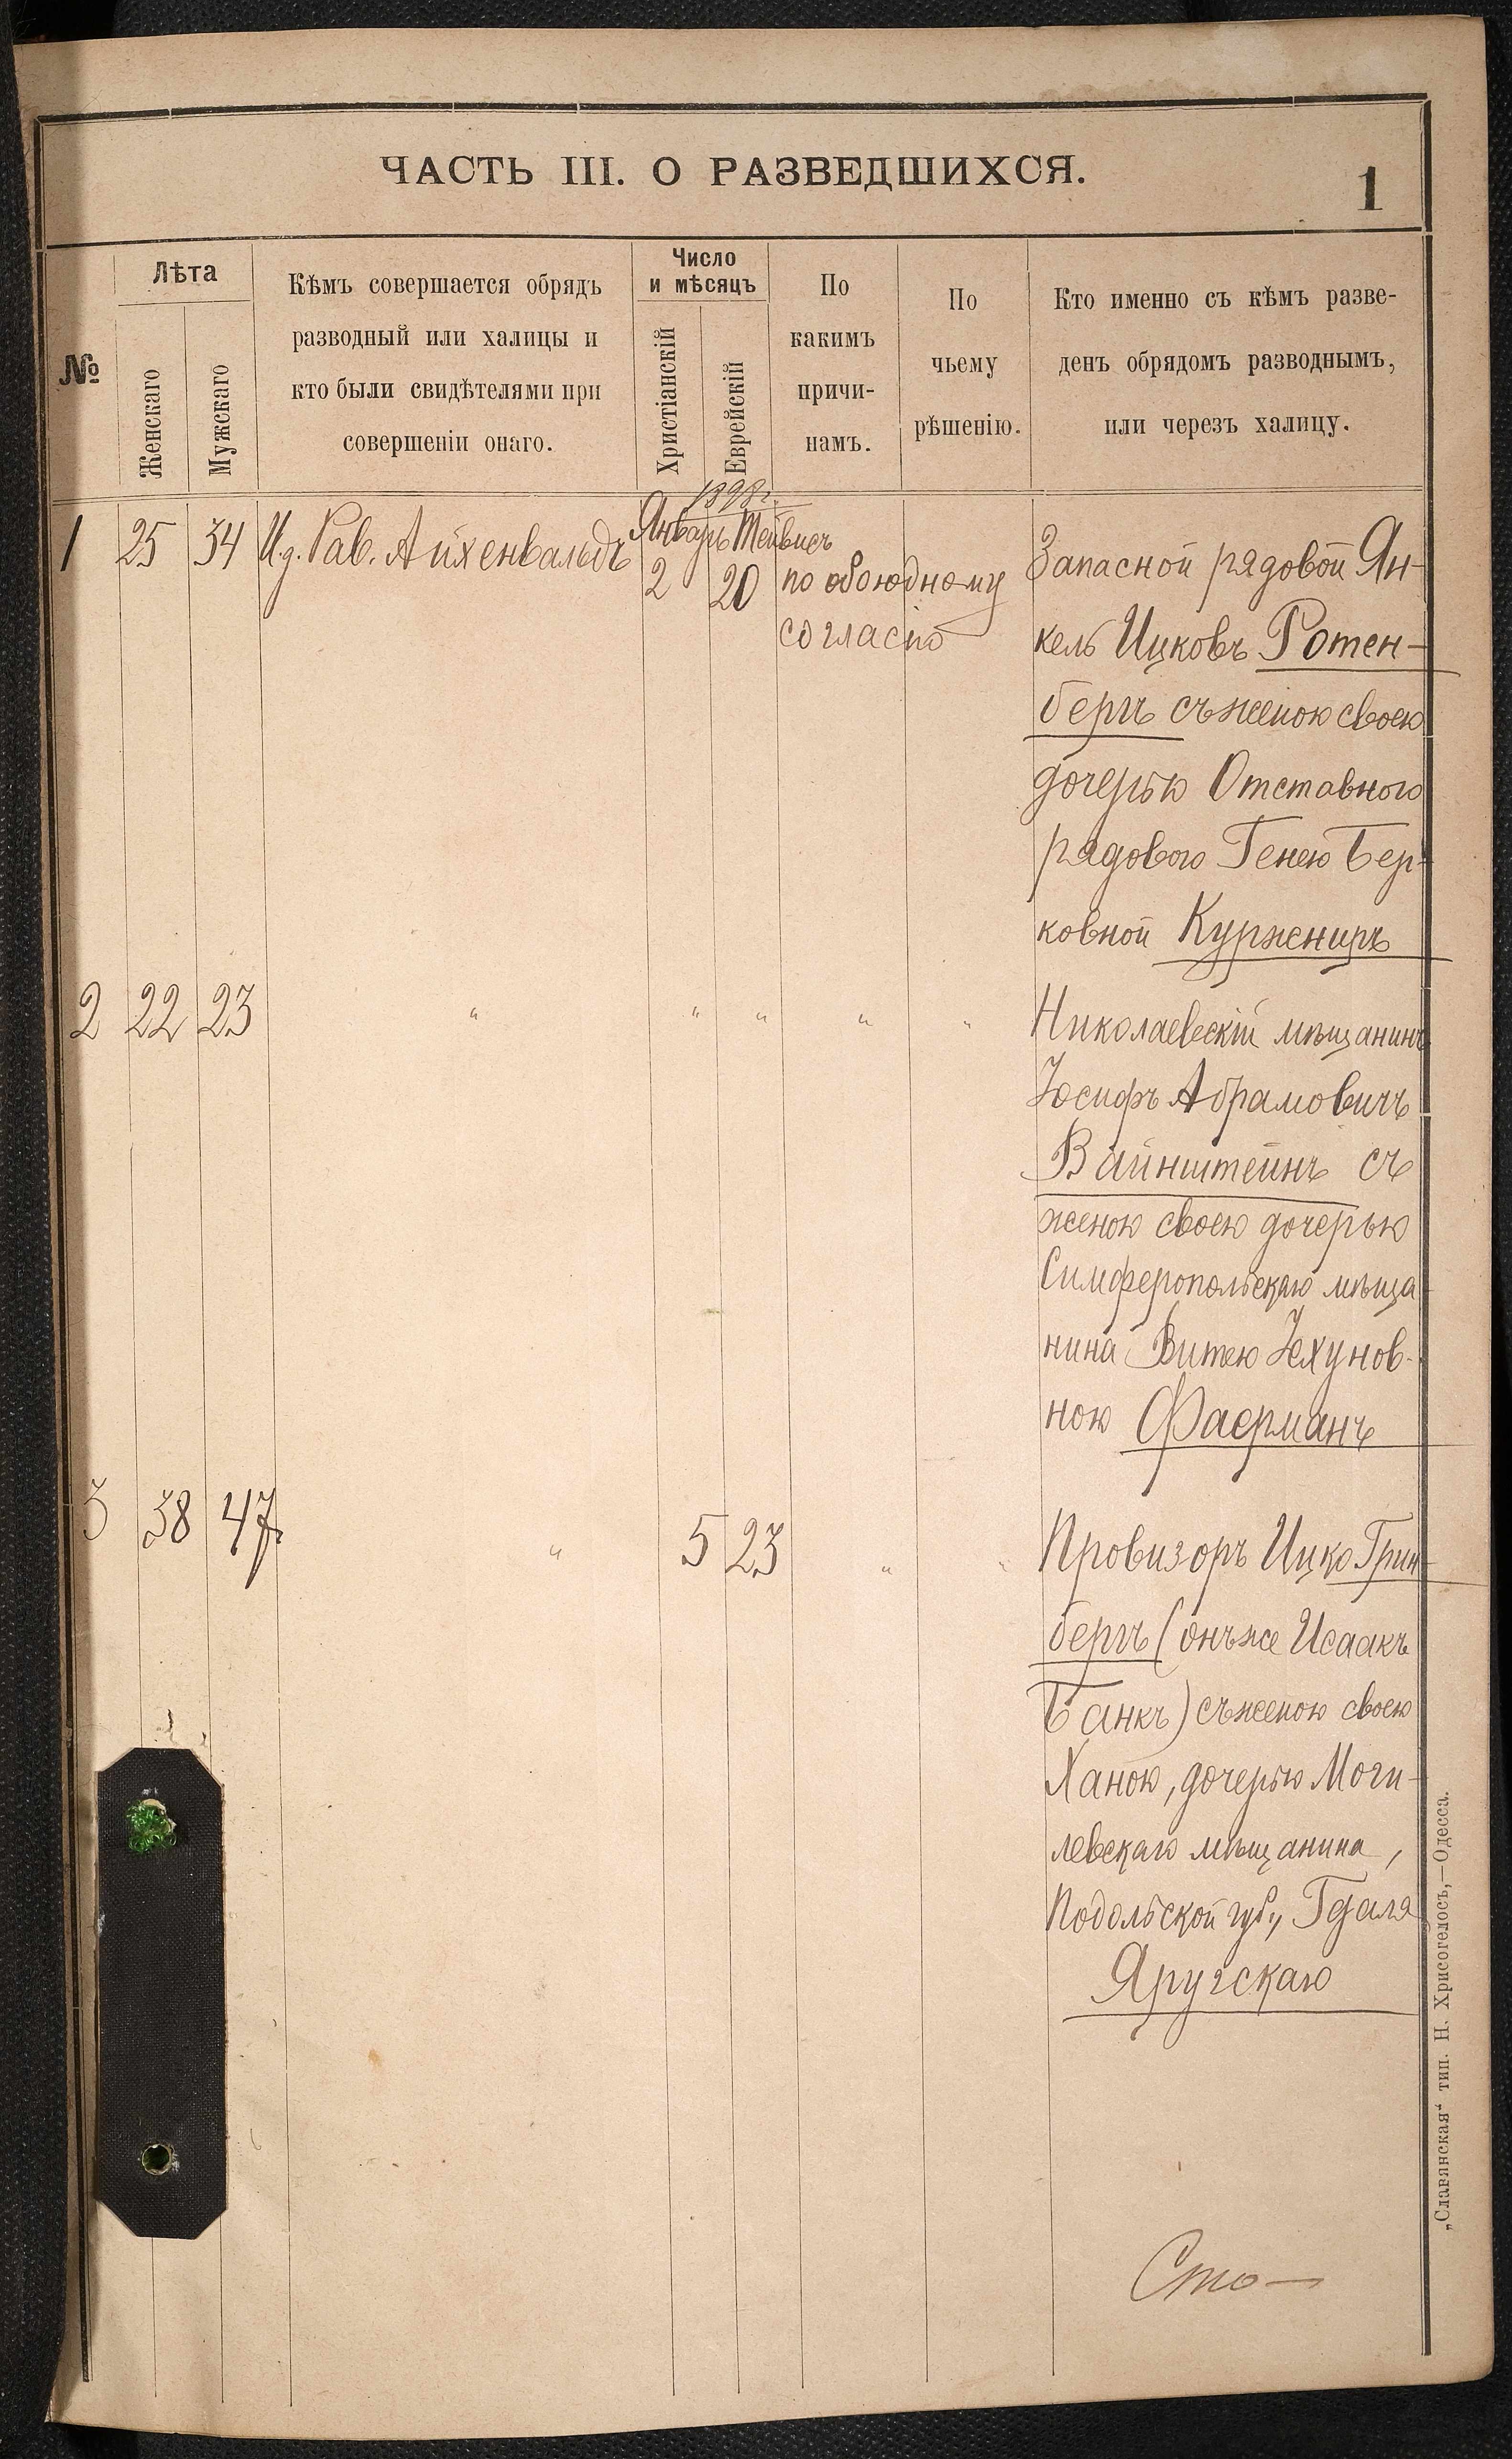 ЧАСТЬ III. О РАЗВЕДШИХСЯ.
1
№
Лѣта
Женскаго
Мужскаго
Кѣмъ совершается обрядъ
разводный или халицы и
кто были свидѣтелями при
совершеніи онаго.
Число
и мѣсяцъ
Христіанскій
Еврейскій
По
какимъ
причи-
намъ.
По
чьему
рѣшенію.
Кто именно съ кѣмъ разве-
денъ обрядомъ разводнымъ,
или черезъ халицу.
1898г.
Январь Тейвисъ
1 25 34 И.д. Рав. Айхенвальдъ 2 20 по обоюдному
согласію
Запасной рядовой Ян-
кель Ицковъ Ротен-
бергъ съ женою своею
дочерью Отставного
рядового Генею Бер-
ковной Куржениръ
2 22 23 " " " " "
Николаевскій мѣщанинъ
Іосифъ Абрамовичъ
Вайнштейнъ съ
женою своею дочерью
Симферопольскаго мѣща
нина Витею Іехунов-
ною Фаерманъ
3 38 47 " 5 23 " "
Провизоръ Ицко Грин-
бергъ (онъ же Исаакъ
Банкъ) съ женою своею
Ханою, дочерью Моги-
левскаго мѣщанина,
Подольской губ., Гдаля
Яругскаго
Сто—
„Славянская“ тип. Н. Хрисогелосъ,—Одесса.